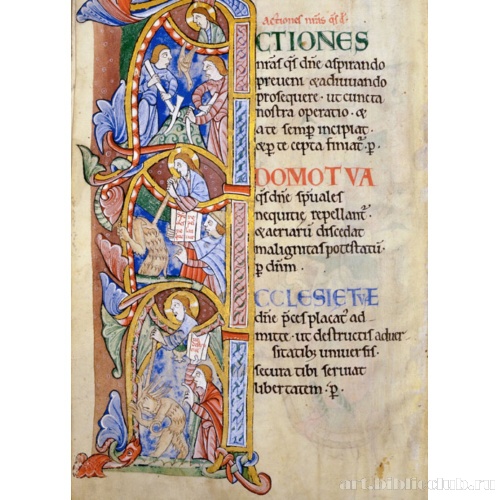 Actiones nr̄as q̄s d̄.
ACTIONES
nr̄as q̄s dn̄e aspirando
preveni & adiuuando
prosequere · ut cuncta
nostra operatio · &
a te semp̄ incipiat ·
& p̄ te cepta finiat᷑ · p̄
A DOMO TVA
q̄s dn̄e sp̄uales
nequitie repellant᷑ ·
& aeriarū discedat
malignitas potestatū ·
p̄ dn̄m ·
ECCLESIE TVE
dn̄e p̄ces placat᷑ ad
mitte · ut destructis aduer
sitatib; uniuersis ·
secura tibi seruiat
libertatem · p̄ ·
art.biblioclub.ru